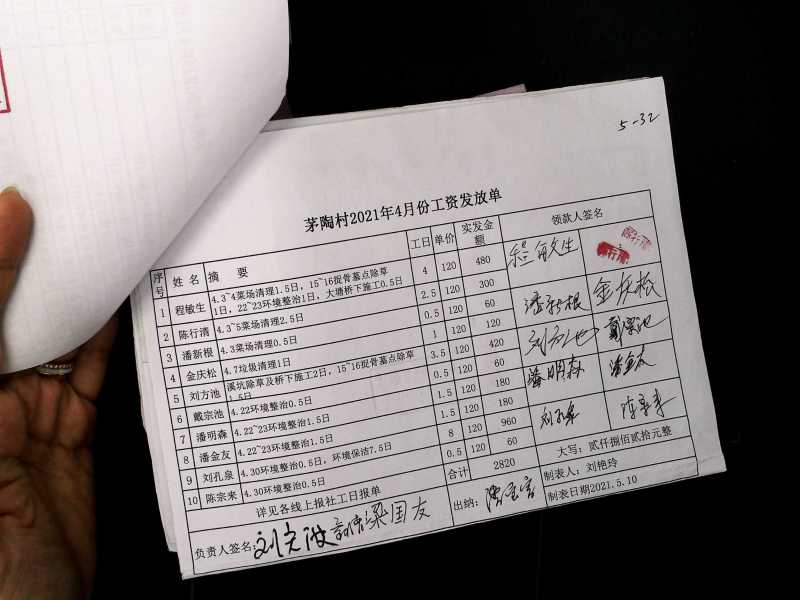 5-32
茅陶村2021年4月份工资发放单
序号 姓名 摘 要 工日 单价 实发金额 领款人签名
1 程敏生 4.3~4菜场清理1.5日，15~16捉骨墓点除草1日，22~23环境整治1日，大塘桥下施工0.5日 4 120 480 程敏生
2 陈行清 4.3~5菜场清理2.5日 2.5 120 300
3 潘新根 4.3菜场清理0.5日 0.5 120 60 潘新根
4 金庆松 4.7垃圾清理1日 1 120 120 金庆松
5 刘方池 溪坑除草及桥下施工2日，15~16捉骨墓点除草1.5日 3.5 120 420 刘方池
6 戴宗池 4.22环境整治0.5日 0.5 120 60 戴宗池
7 潘明森 4.22~23环境整治1.5日 1.5 120 180 潘明森
8 潘金友 4.22~23环境整治1.5日 1.5 120 180 潘金友
9 刘孔泉 4.30环境整治0.5日，环境保洁7.5日 8 120 960 刘孔泉
10 陈宗来 4.30环境整治0.5日 0.5 120 60 陈宗来
详见各线上报社工日报单 合计 2820 大写：贰仟捌佰贰拾元整
负责人签名： 梁国友 出纳： 制表人：刘艳玲
制表日期2021.5.10